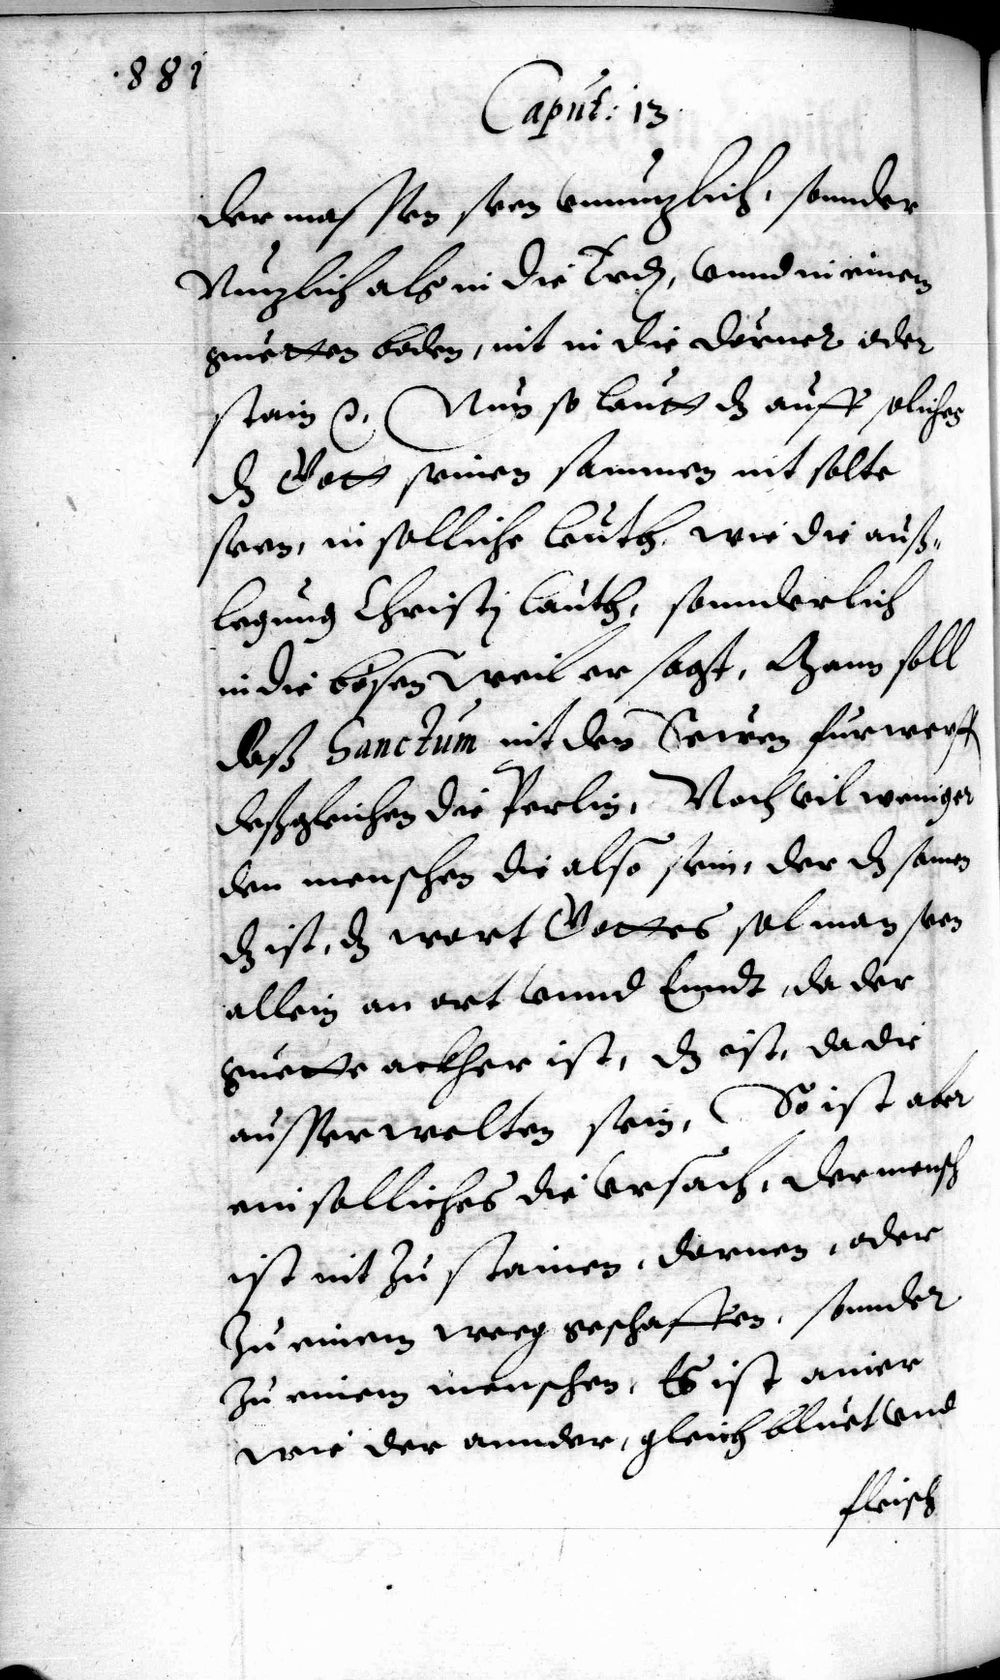 .881
Caput: 13.
der massen seen vnnuzlich, sonnder
Nuzlich als in die Erd, vnnd in einem
guetten boden, nit in die dörner oder
stain ꝛc. Nun so lautt dz auff soliches
dz Gott seinen sammen nit solte
seen, in solliche leuth, wie die auß„
legung Christj lauth, sonnderlich
in die bösen weil er sagt, Mann soll
daß Sanctum nit den Sewen furwerff
deßgleichen die Perlin, Noch vil weniger
den menschen die also sein, der dz samen
dz ist, dz wort Gottes sol man seen
allein an ort vnnd Enndt, da der
guette ackher ist, dz ist, da die
ausserwelten sein, So ist aber
ein solliches die vrsach, der mensch
ist nit zu stainen, dornen, oder
zu einem weeg geschaffen, sonnder
zu einem menschen, Es ist ainer
wie der annder, gleich bluet vnd
fleisch